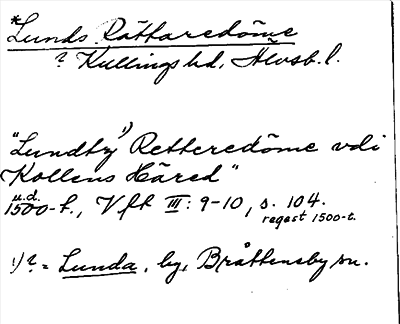 *Lunds Råttaredöme
? Kullings hd, Älvsb. l.
"Lundby¹⁾ Retteredöme vdi
Kollens Häred"
u.d.
1500-t., Vft III: 9-10, s. 104.
regest 1500-t.
¹⁾ ? = Lunda, by, Bråttensby sn.